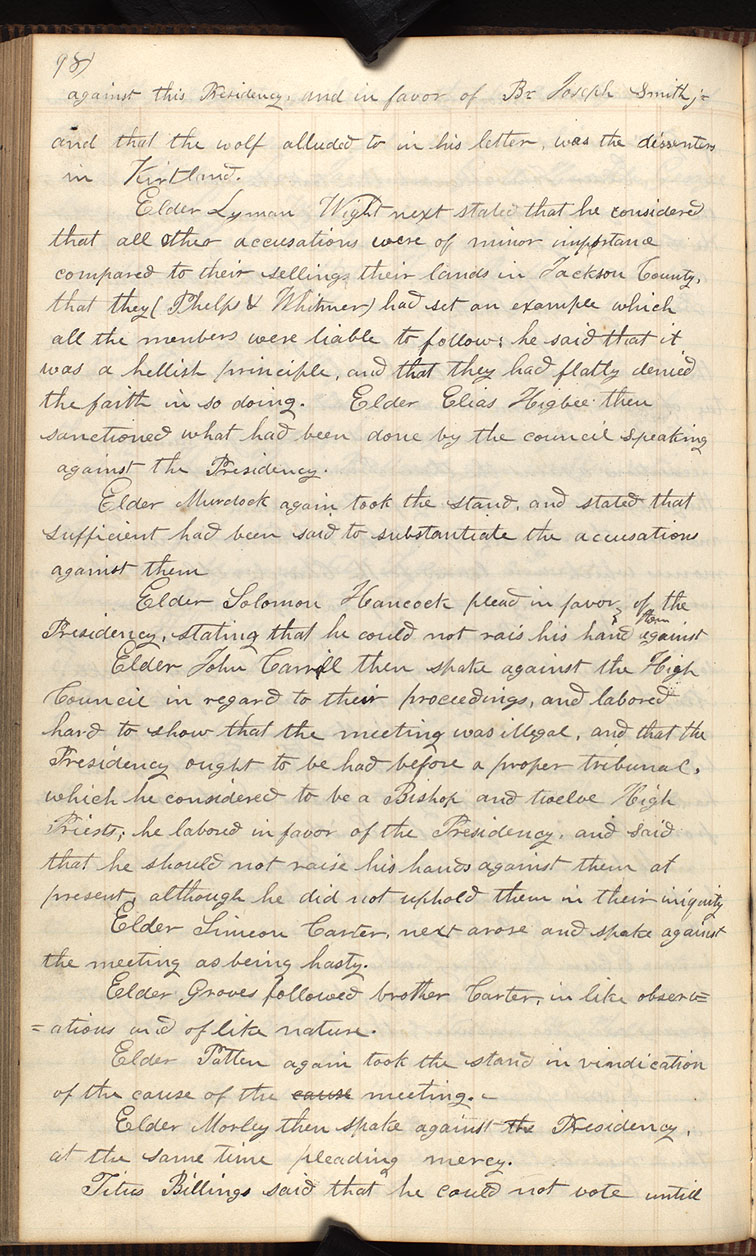 98)
against this Presidency, and in favor of Br Joseph Smith;=
and that the wolf alluded to in his letter, was the dissenters
in Kirtland.
Elder Lyman Wight next stated that he considered
that all other accusations were of minor importance
compared to their selling their lands in Jackson County,
that they (Phelps & Whitmer) had set an example which
all the members were liable to follow; he said that it
was a hellish principle, and that they had flatly denied
the faith in so doing. Elder Elias Higbee then
sanctioned what had been done by the council speaking
against the Presidency.
Elder Murdock again took the stand, and stated that
sufficient had been said to substantiate the accusations
against them
Elder Solomon Hancock plead in favor of the
Presidency, stating that he could not rais his hand against them
Elder John Carrill then spake against the High
Council in regard to their proceedings, and labored
hard to show that the meeting was illegal, and that the
Presidency ought to be had before a proper tribunal,
which he considered to be a Bishop and twelve High
Priests; he labored in favor of the Presidency, and said
that he should not raise his hands against them at
present, although he did not uphold them in their iniquity
Elder Simeon Carter, next arose and spake against
the meeting as being hasty.
Elder Groves followed brother Carter, in like observ=
=ations and of like nature.
Elder Patten again took the stand in vindication
of the cause of the cause meeting.
Elder Morley then spake against the Presidency,
at the same time pleading mercy.
Titus Billings said that he could not vote untill